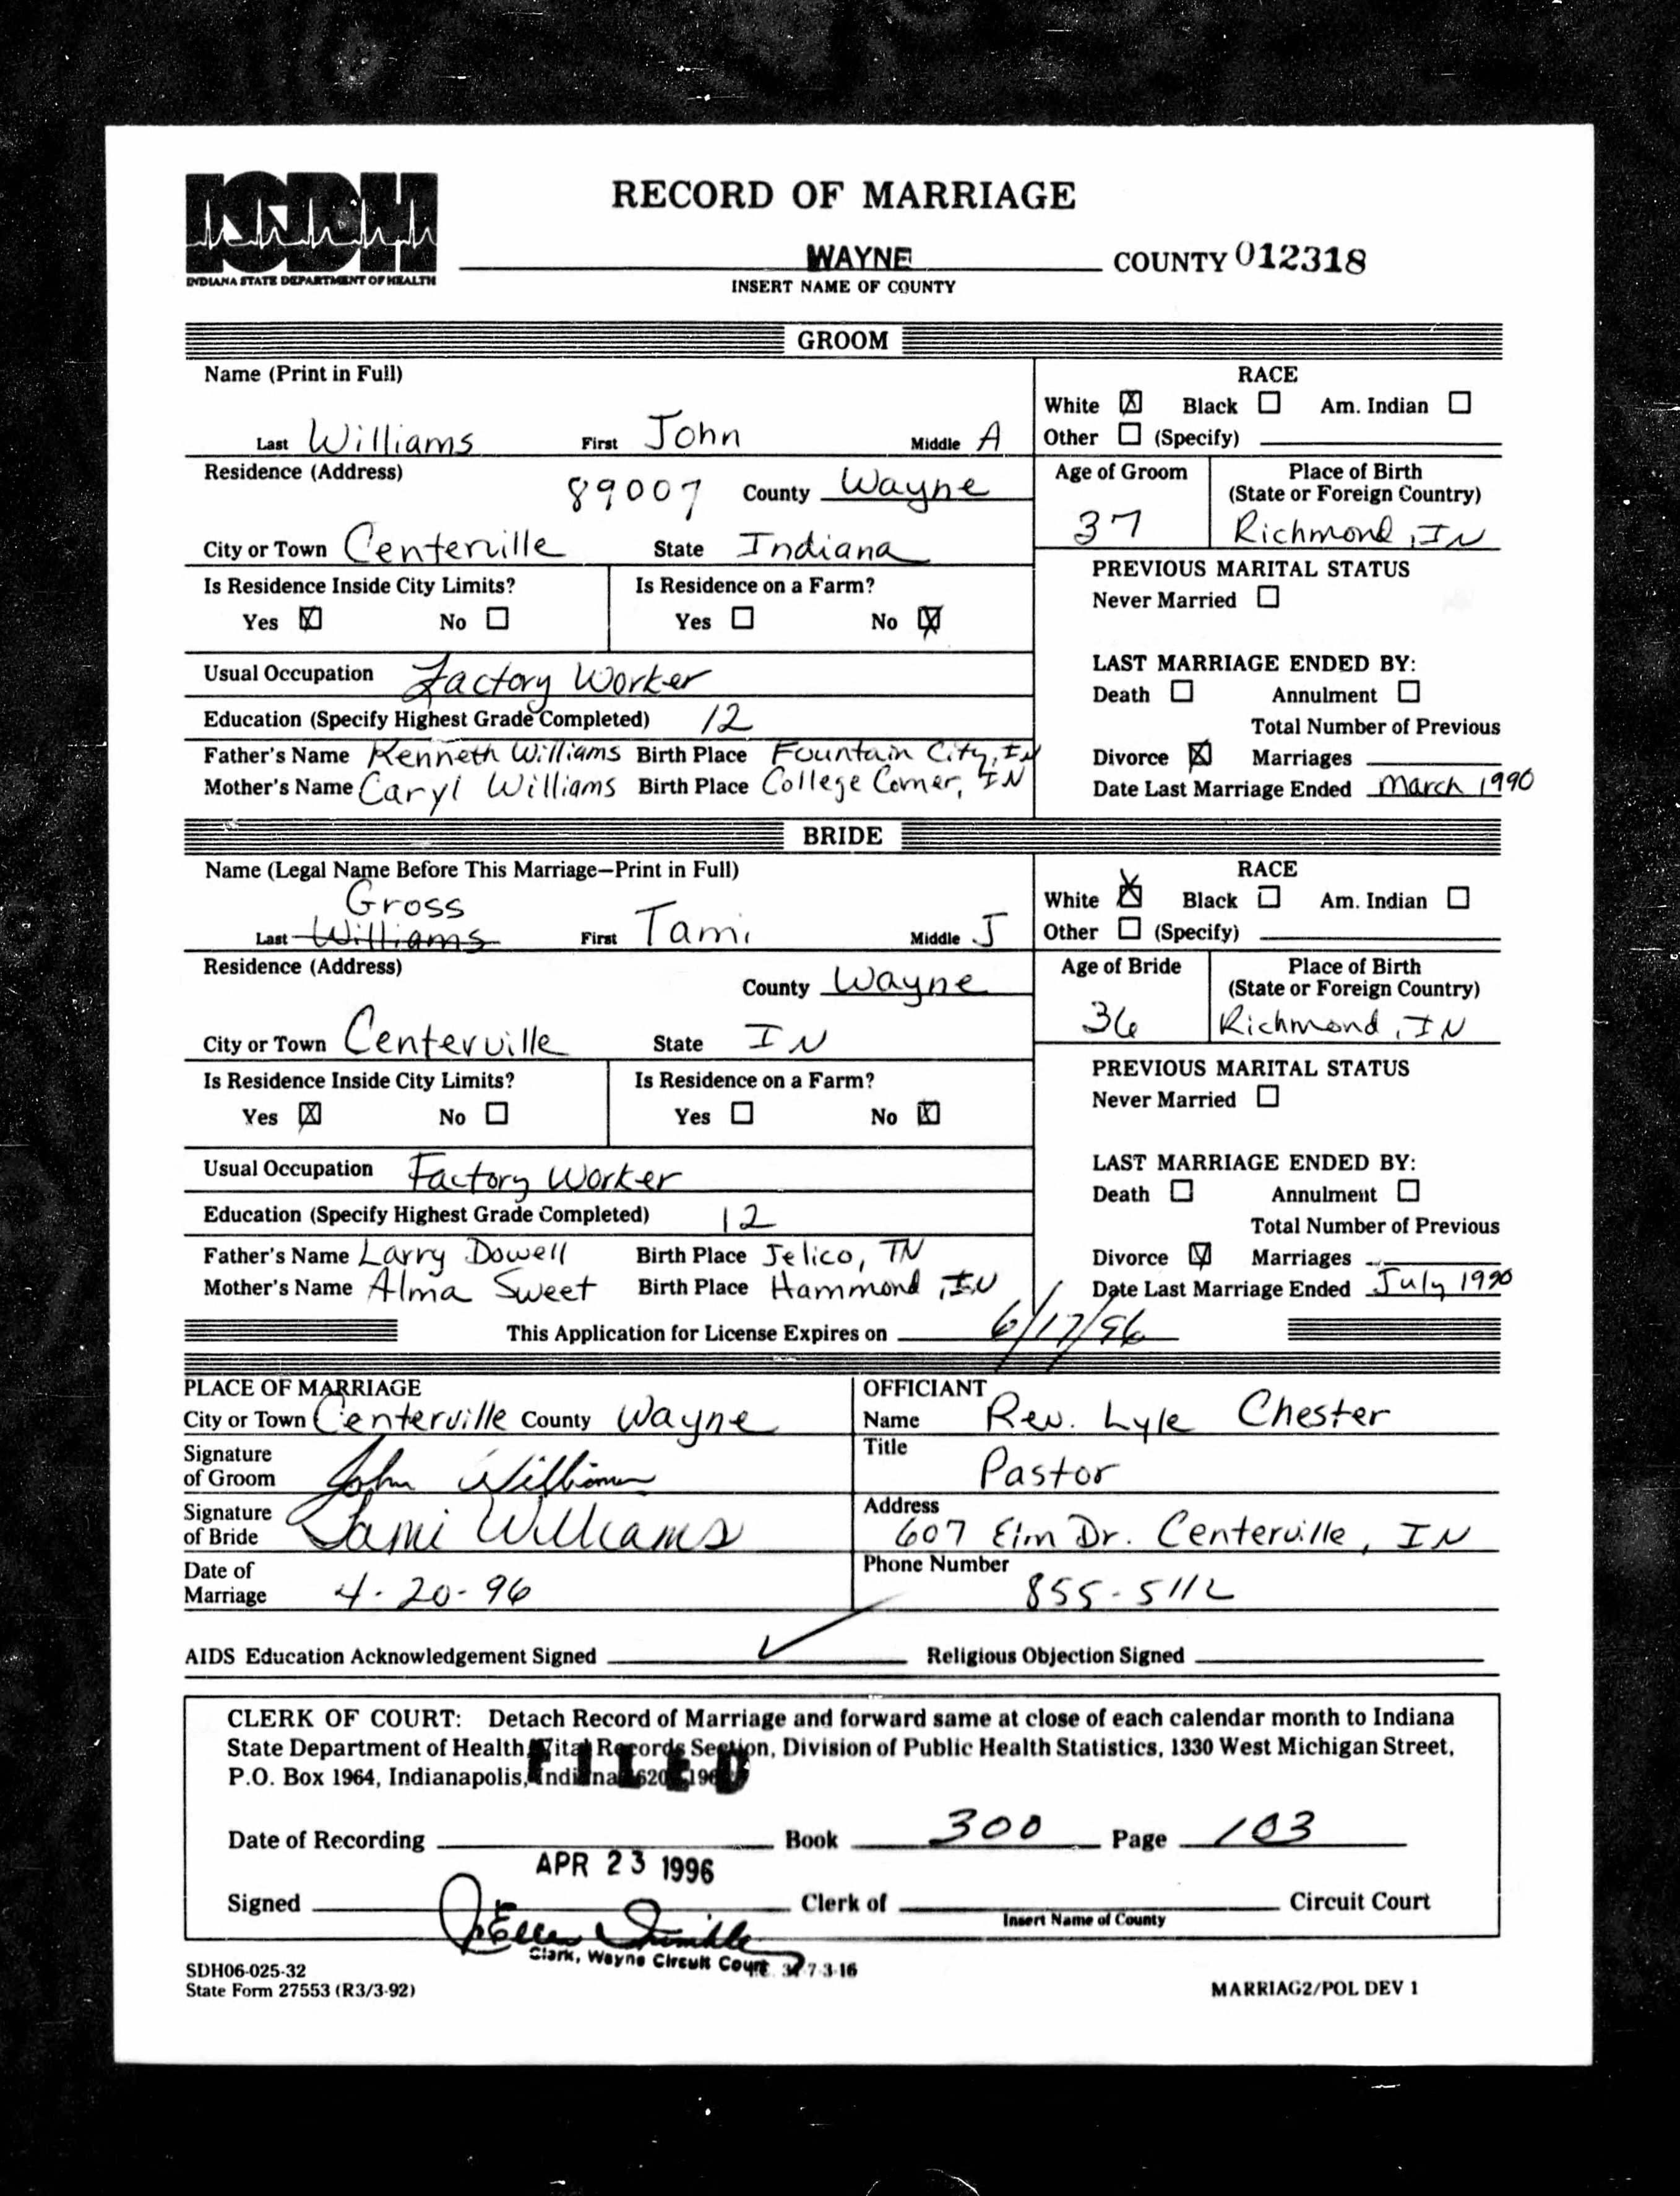 ISDH
INDIANA STATE DEPARTMENT OF HEALTH
RECORD OF MARRIAGE
WAYNE COUNTY 012318
INSERT NAME OF COUNTY
GROOM
Name (Print in Full)
Last Williams First John Middle A
RACE
White ☒ Black ☐ Am. Indian ☐
Other ☐ (Specify)
Residence (Address)
89007 County Wayne
City or Town Centerville State Indiana
Age of Groom
37
Place of Birth
(State or Foreign Country)
Richmond, IN
Is Residence Inside City Limits?
Yes ☒ No ☐
Is Residence on a Farm?
Yes ☐ No ☒
PREVIOUS MARITAL STATUS
Never Married ☐
Usual Occupation Factory Worker
Education (Specify Highest Grade Completed) 12
Father's Name Kenneth Williams Birth Place Fountain City, IN
Mother's Name Caryl Williams Birth Place College Corner, IN
LAST MARRIAGE ENDED BY:
Death ☐ Annulment ☐
Total Number of Previous
Divorce ☒ Marriages
Date Last Marriage Ended March 1990
BRIDE
Name (Legal Name Before This Marriage—Print in Full)
Gross
Last Williams First Tami Middle J
RACE
White ☒ Black ☐ Am. Indian ☐
Other ☐ (Specify)
Residence (Address)
County Wayne
City or Town Centerville State IN
Age of Bride
36
Place of Birth
(State or Foreign Country)
Richmond, IN
Is Residence Inside City Limits?
Yes ☒ No ☐
Is Residence on a Farm?
Yes ☐ No ☒
PREVIOUS MARITAL STATUS
Never Married ☐
Usual Occupation Factory Worker
Education (Specify Highest Grade Completed) 12
Father's Name Larry Dowell Birth Place Jelico, TN
Mother's Name Alma Sweet Birth Place Hammond, IN
LAST MARRIAGE ENDED BY:
Death ☐ Annulment ☐
Total Number of Previous
Divorce ☒ Marriages
Date Last Marriage Ended July 1990
This Application for License Expires on 6/17/96
PLACE OF MARRIAGE
City or Town Centerville County Wayne
Signature
of Groom John Williams
Signature
of Bride Tami Williams
Date of
Marriage 4-20-96
OFFICIANT
Name Rev. Lyle Chester
Title
Pastor
Address
607 Elm Dr. Centerville, IN
Phone Number
855-5112
AIDS Education Acknowledgement Signed ✓ Religious Objection Signed
CLERK OF COURT: Detach Record of Marriage and forward same at close of each calendar month to Indiana
State Department of Health, Vital Records Section, Division of Public Health Statistics, 1330 West Michigan Street,
P.O. Box 1964, Indianapolis, Indiana
FILED
Date of Recording Book 300 Page 103
APR 23 1996
Signed Clerk of Circuit Court
Insert Name of County
Clerk, Wayne Circuit Court
SDH06-025-32
State Form 27553 (R3/3-92)
MARRIAG2/POL DEV 1